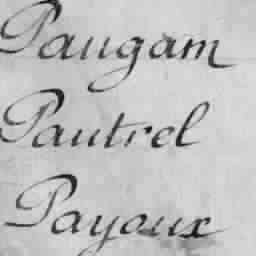 Paugam
Pautrel
Payoux